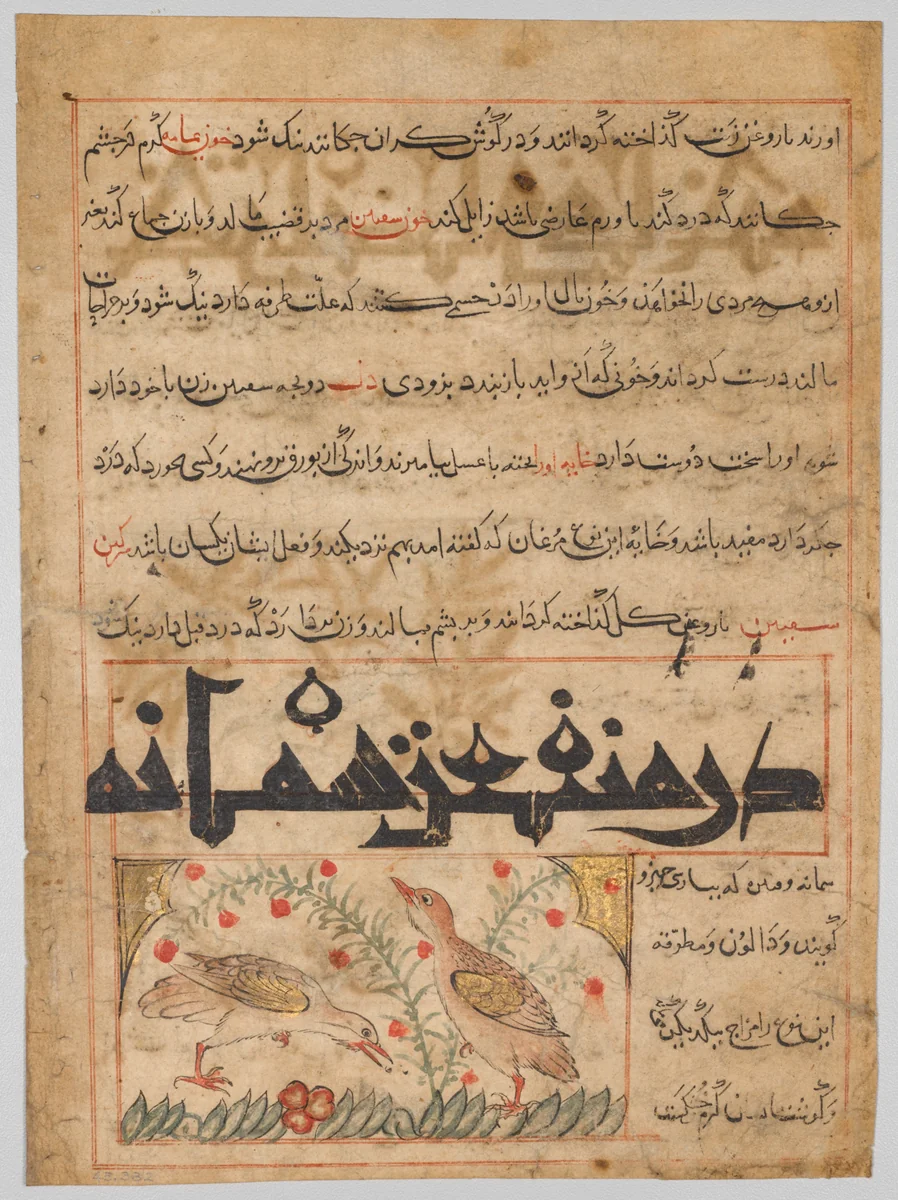 اورند با روغن زیت گداخته گردانند و در گوش کران چکانند نیک شود خون یمامه گرم در چشم
چکانند که درد کند یا ورم عارضی باشد زایل کند خون سفنین مرد بر قضیب مالد و با زن جماع کند بغیر
ازو هیچ مردی را نخواهد و خون بال او را در چشمی کشند که علت طرفه دارد نیک شود و بر جراحات
مالند درست گرداند و خونی که از و اید باز بندد بزودی دل دو بچه سفنین زن با خود دارد
شوی او را سخت دوست دارد خایه اورا بخته با عسل بیامیزند و اندکی از بورق برو نهند و کسی بخورد که درد
جگر دارد مفید باشد و خایه این نوع مرغان که گفته امد بهم نزدیکند و فعل ایشان یکسان باشد سرکین
سفنین با روغن کل گداخته گردانند و بر بشم بیالند و زن بردارد که درد قبل دارد نیک شود
در منفعت سمانه
سمانه و
گویند و
این نوع را مزاج بیکدیکر
و گوشت ایشان گرم و خشکست